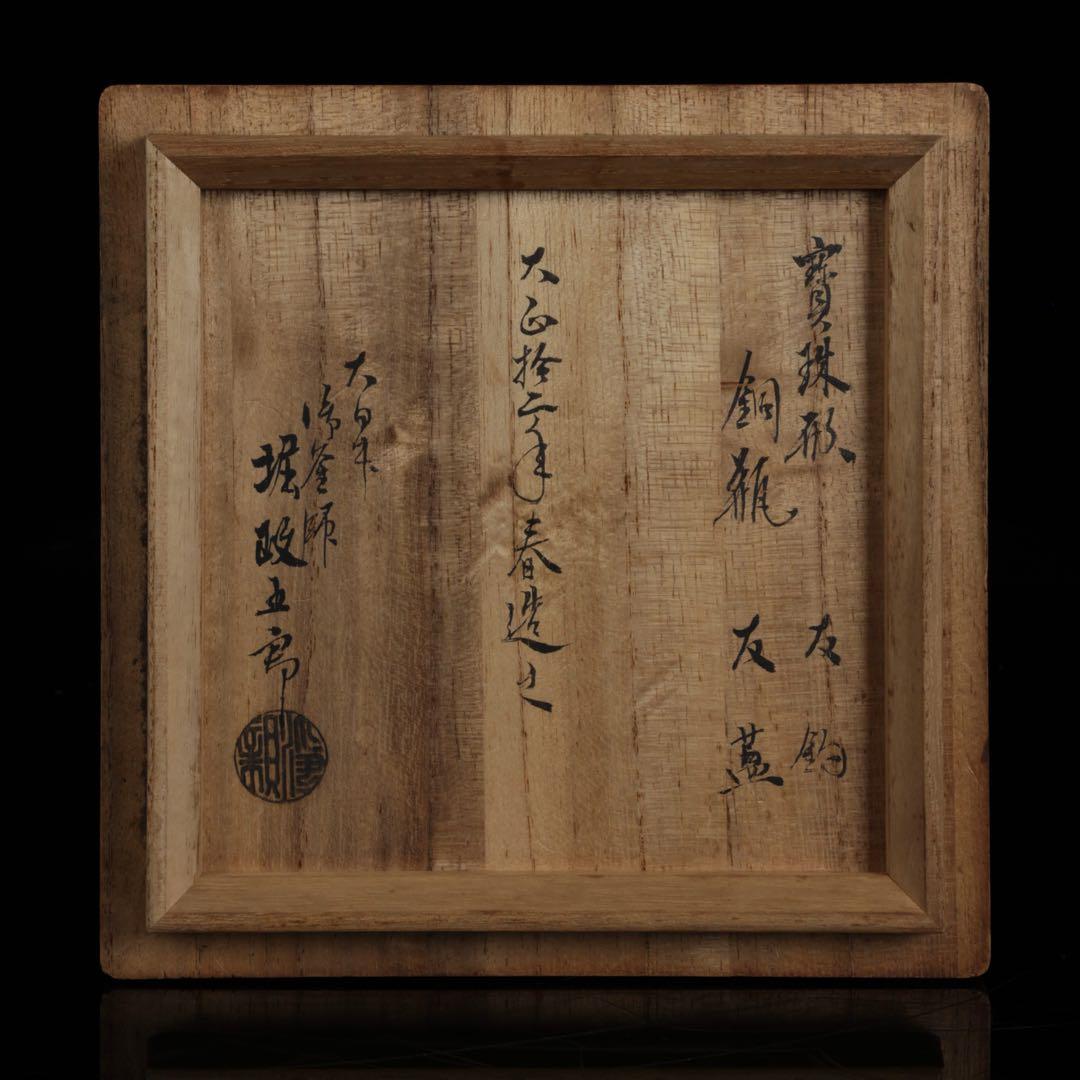 寶珠形
銅瓶
友鈎
友蓋
大正拾二年春造之
大日本
御釜師
堀政五郎